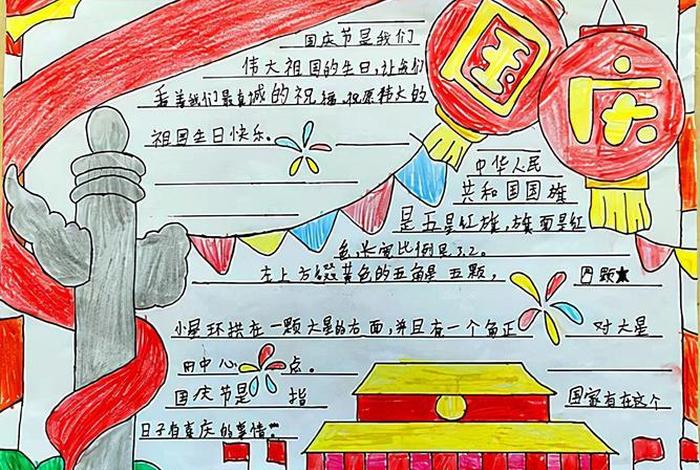 国庆
国庆节是我们
伟大祖国的生日,让我们
着我们最真诚的祝福,祝愿伟大的
祖国生日快乐。
中华人民
共和国国旗
是五星红旗,旗面是红
色,长宽比例是3:2。
左上方缀黄色的五角星五颗,
四颗
小星环拱在一颗大星的右面,并且有一个角正 对大星
的中心 点。
国庆节是 指 国家有在这个
日子有喜庆的事情。